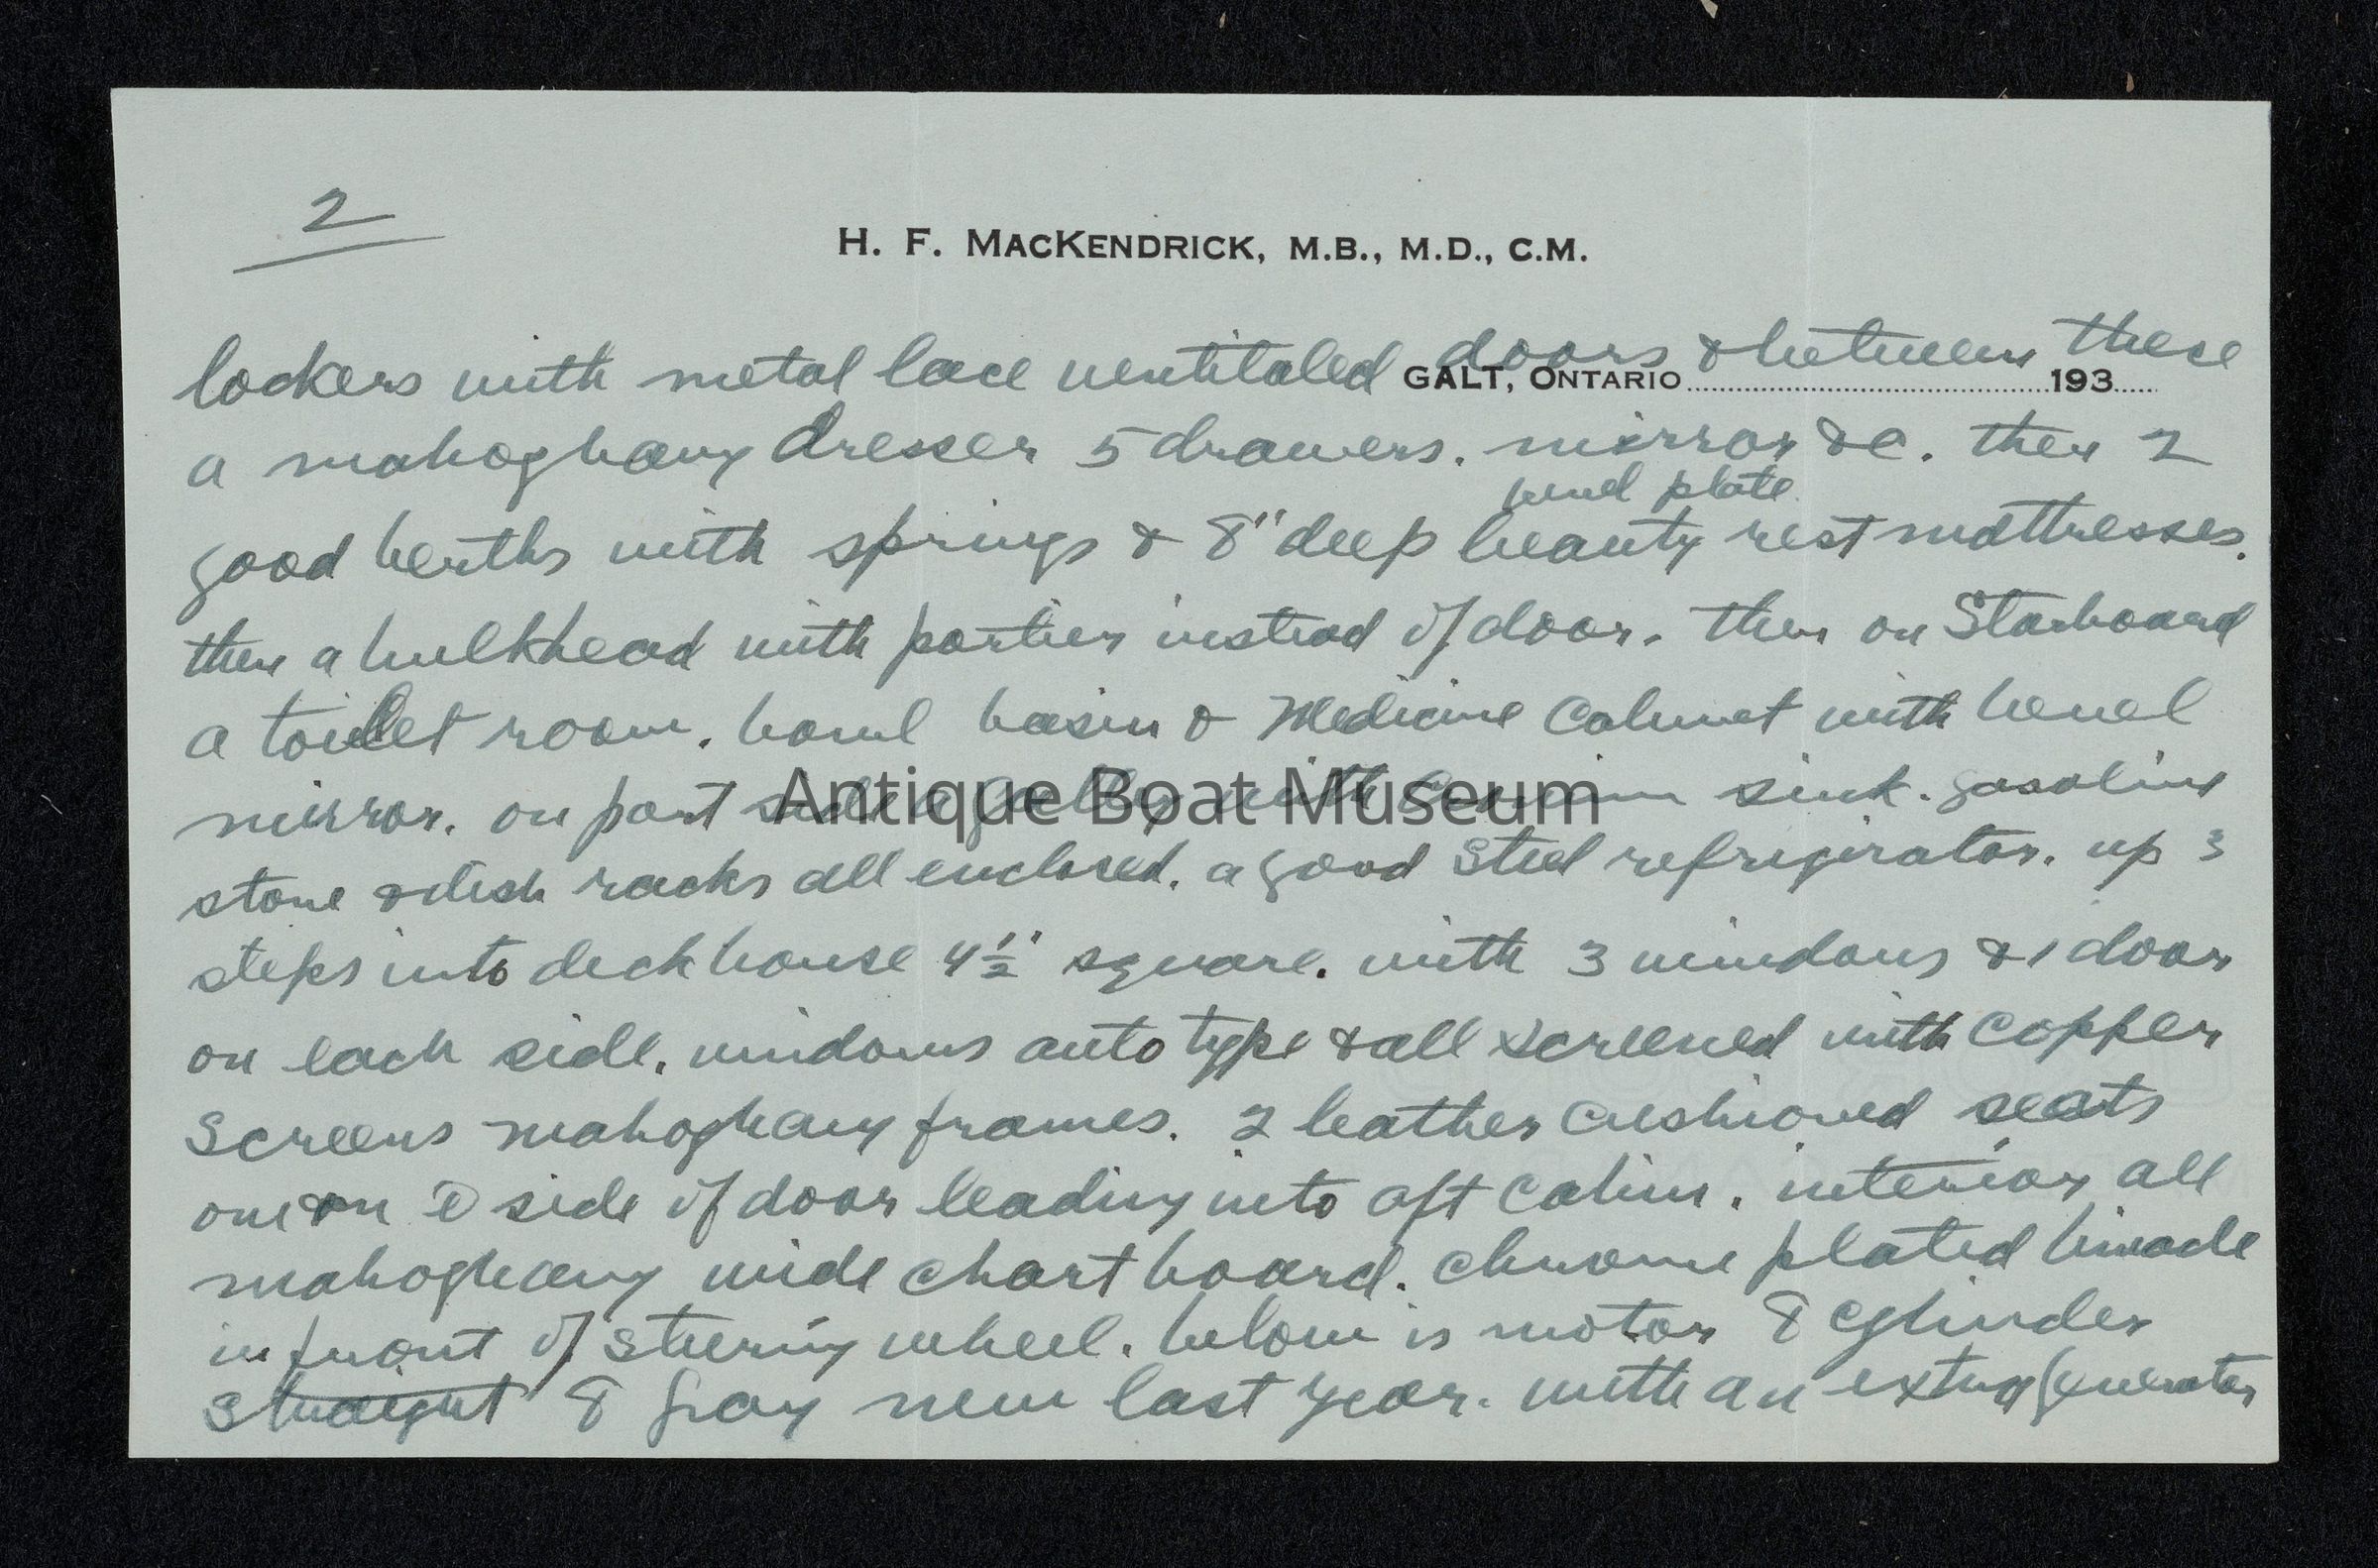 2
H. F. MACKENDRICK, M.B., M.D., C.M.
GALT, ONTARIO 193
lockers with metal lace ventilated doors & between these
a mahoghany dresser 5 drawers. mirror &c. then 2
bevel plate
good berths with springs & 8" deep beauty rest mattresses.
then a bulkhead with portier instead of door. then on Starboard
a toilet room. bowl basin & Medicine Cabinet with bevel
mirror. on port side a galley with sink. gasoline
stove & dish racks all enclosed. a good Steel refrigirator. up 3
steps into deck house 4½' square. with 3 windows & 1 door
on each side. windows auto type & all screened with copper
Screens mahoghany frames. 2 leather cushioned seats
one on side of door leading into aft cabin. interior all
mahoghany wide chart board. chrome plated binacle
in front of steering wheel. below is motor 8 cylinder
straight 8 Gray new last year. with an extra generator
Antique Boat Museum